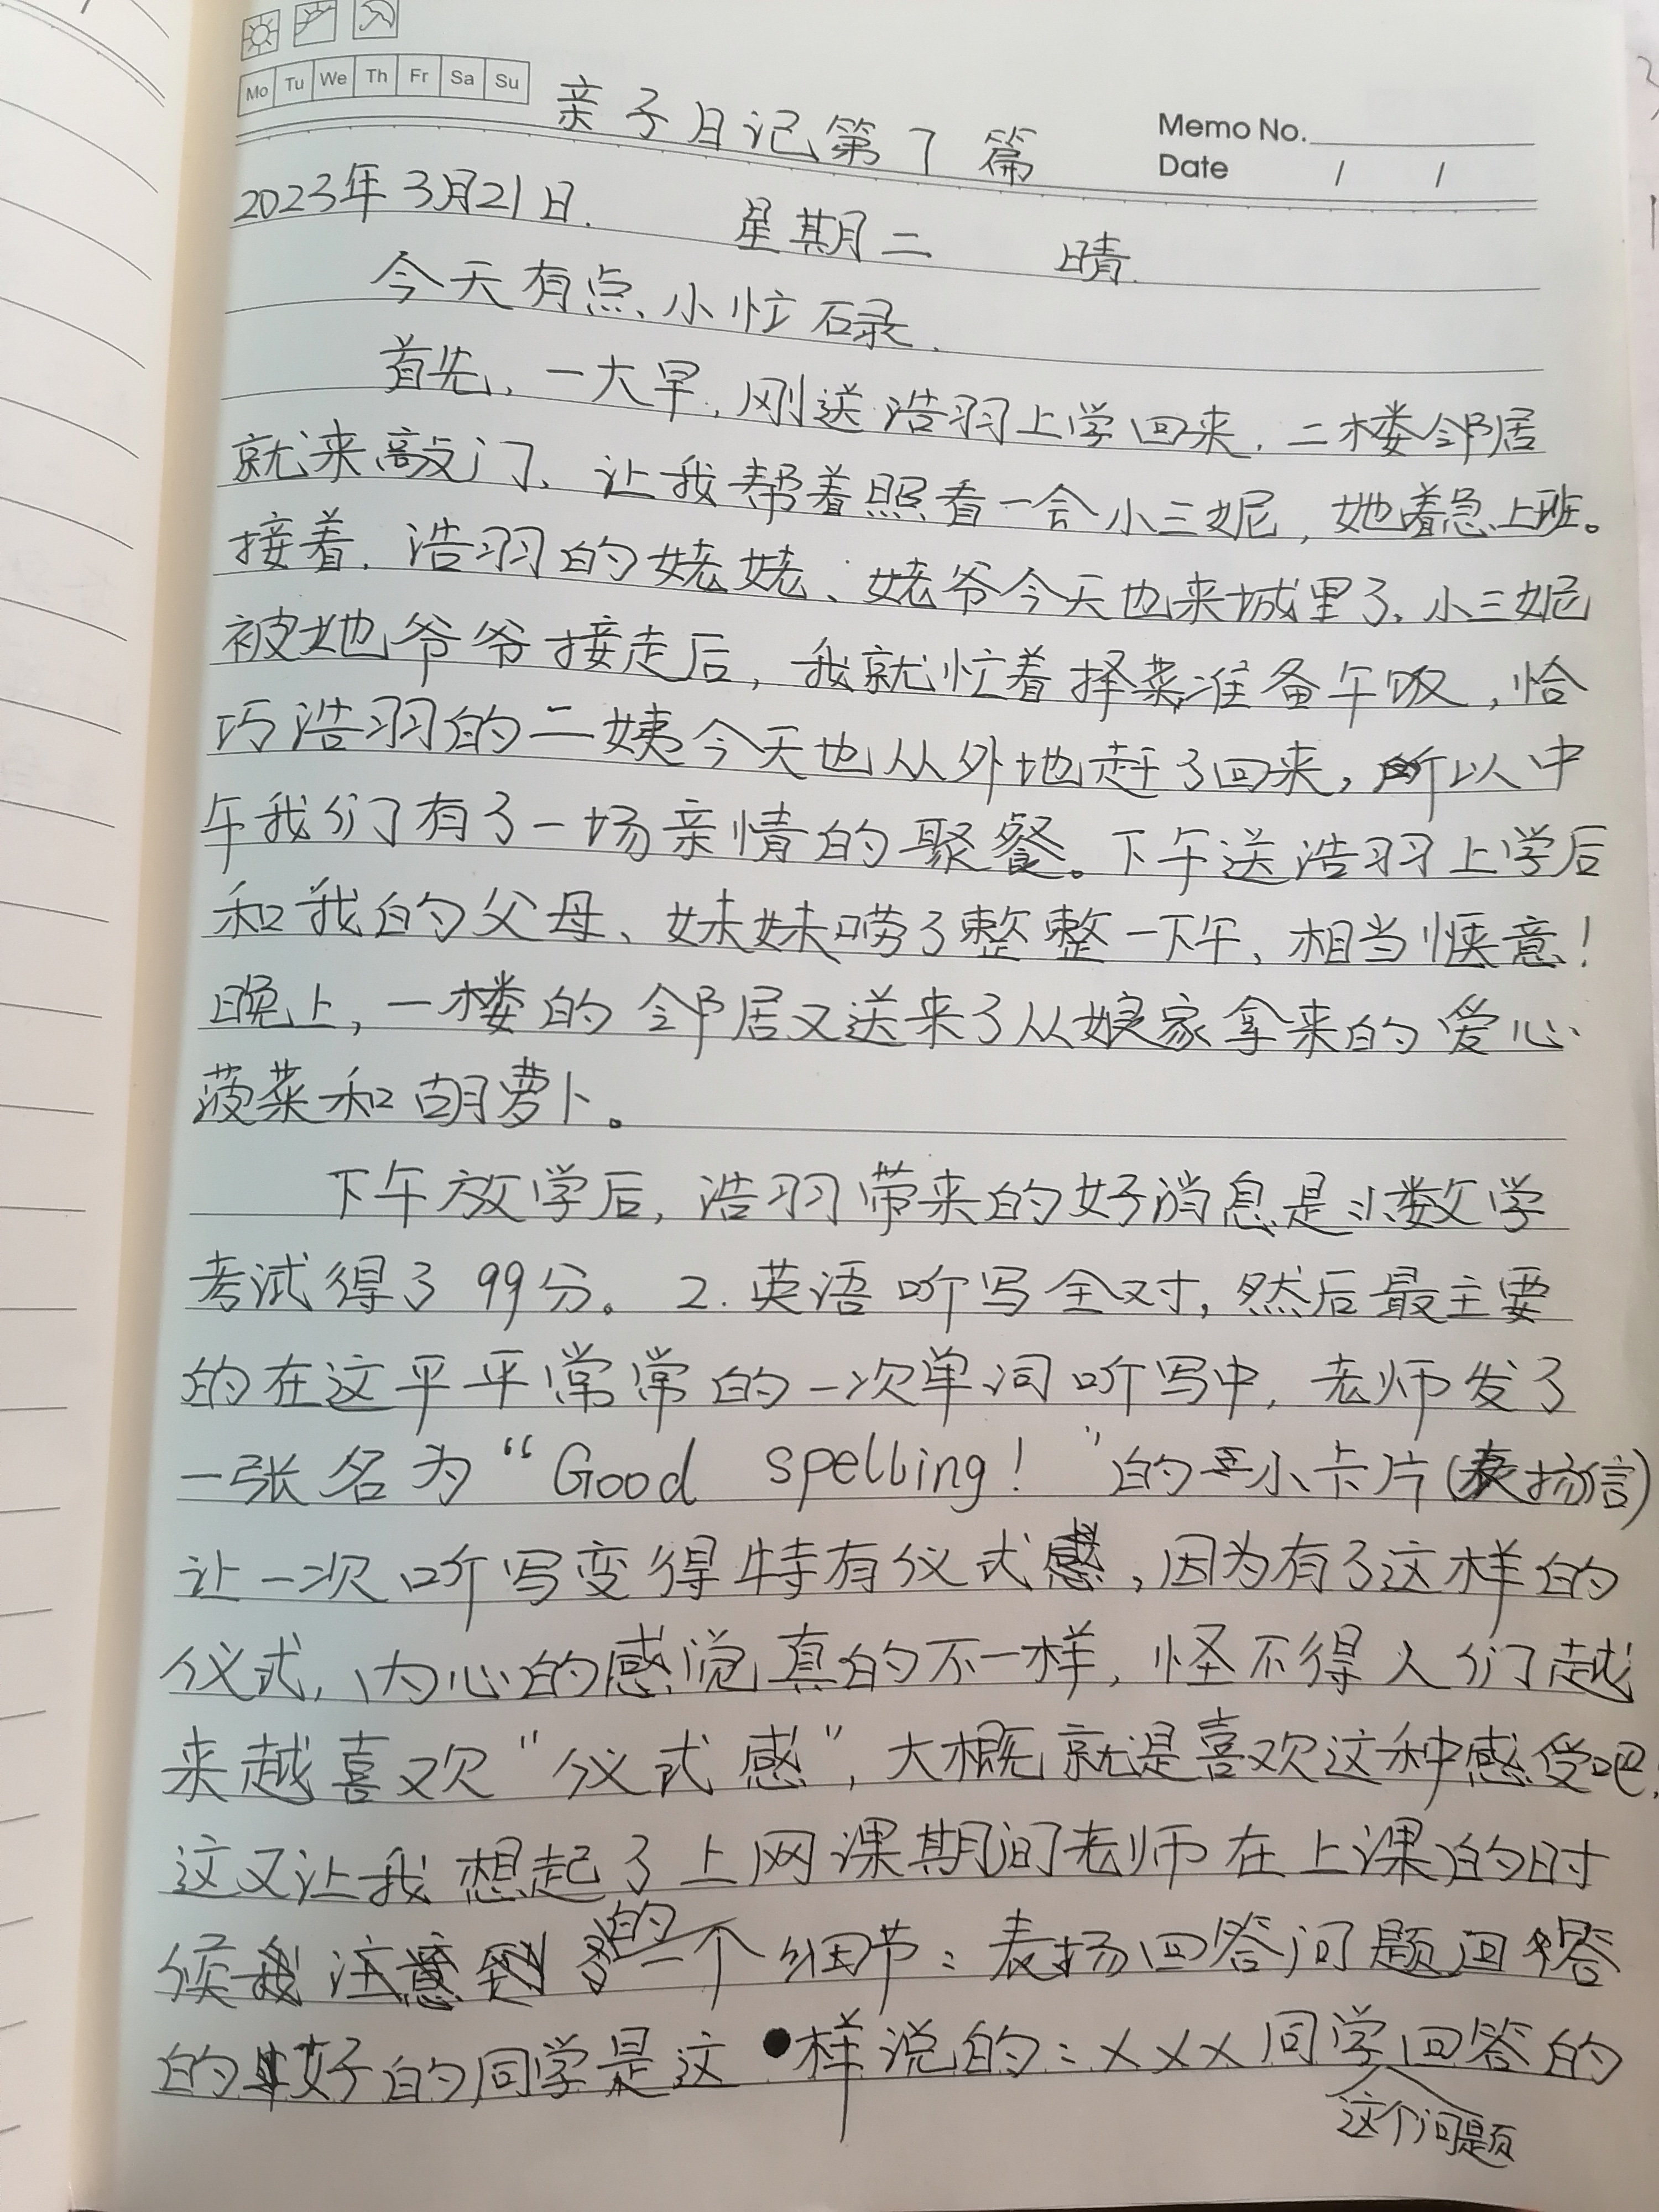 Mo Tu We Th Fr Sa Su
亲子日记第7篇
Memo No.
Date / /
2023年3月21日. 星期二 晴.
今天有点小忙碌.
首先,一大早,刚送浩羽上学回来,二楼邻居
就来敲门、让我帮着照看一会小三妮,她着急上班。
接着,浩羽的姥姥、姥爷今天也来城里了,小三妮
被她爷爷接走后,我就忙着择菜准备午饭,恰
巧浩羽的二姨今天也从外地赶了回来,所以中
午我们有了一场亲情的聚餐。下午送浩羽上学后
和我的父母、妹妹唠了整整一下午,相当惬意!
晚上,一楼的邻居又送来了从娘家拿来的爱心
菠菜和胡萝卜。
下午放学后,浩羽带来的好消息是:1.数学
考试得了99分。2.英语听写全对,然后最主要
的在这平平常常的一次单词听写中,老师发了
一张名为“Good spelling!”的小卡片(表扬信)
让一次听写变得特有仪式感,因为有了这样的
仪式,内心的感觉真的不一样,怪不得人们越
来越喜欢“仪式感”,大概就是喜欢这种感受吧.
这又让我想起了上网课期间老师在上课的时
候注意到的一个细节:表扬回答问题回答
的好的同学是这样说的:×××同学回答的
这个问题